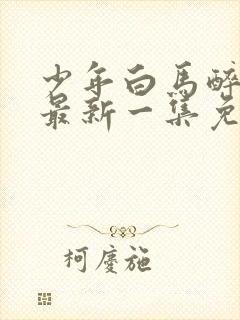 少年白马醉
最新一集免
柯慶施